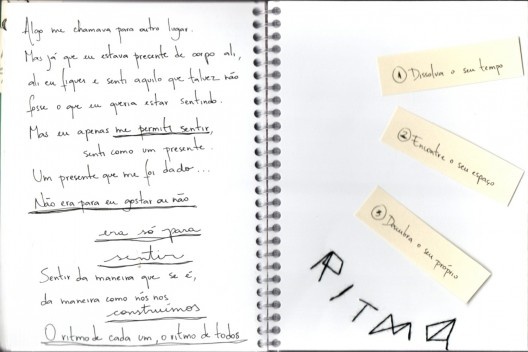 Algo me chamava para outro lugar.
Mas já que eu estava presente de corpo ali,
ali eu fiquei e senti aquilo que talvez não
fosse o que eu queria estar sentindo.
Mas eu apenas me permiti sentir,
senti como um presente.
Um presente que me foi dado...
Não era para eu gostar ou não
era só para
sentir
Sentir da maneira que se é,
da maneira como nós nos
construímos
O ritmo de cada um, o ritmo de todos
1 Dissolva o seu tempo
2 Encontre o seu espaço
3 Descubra o seu próprio
RITMO